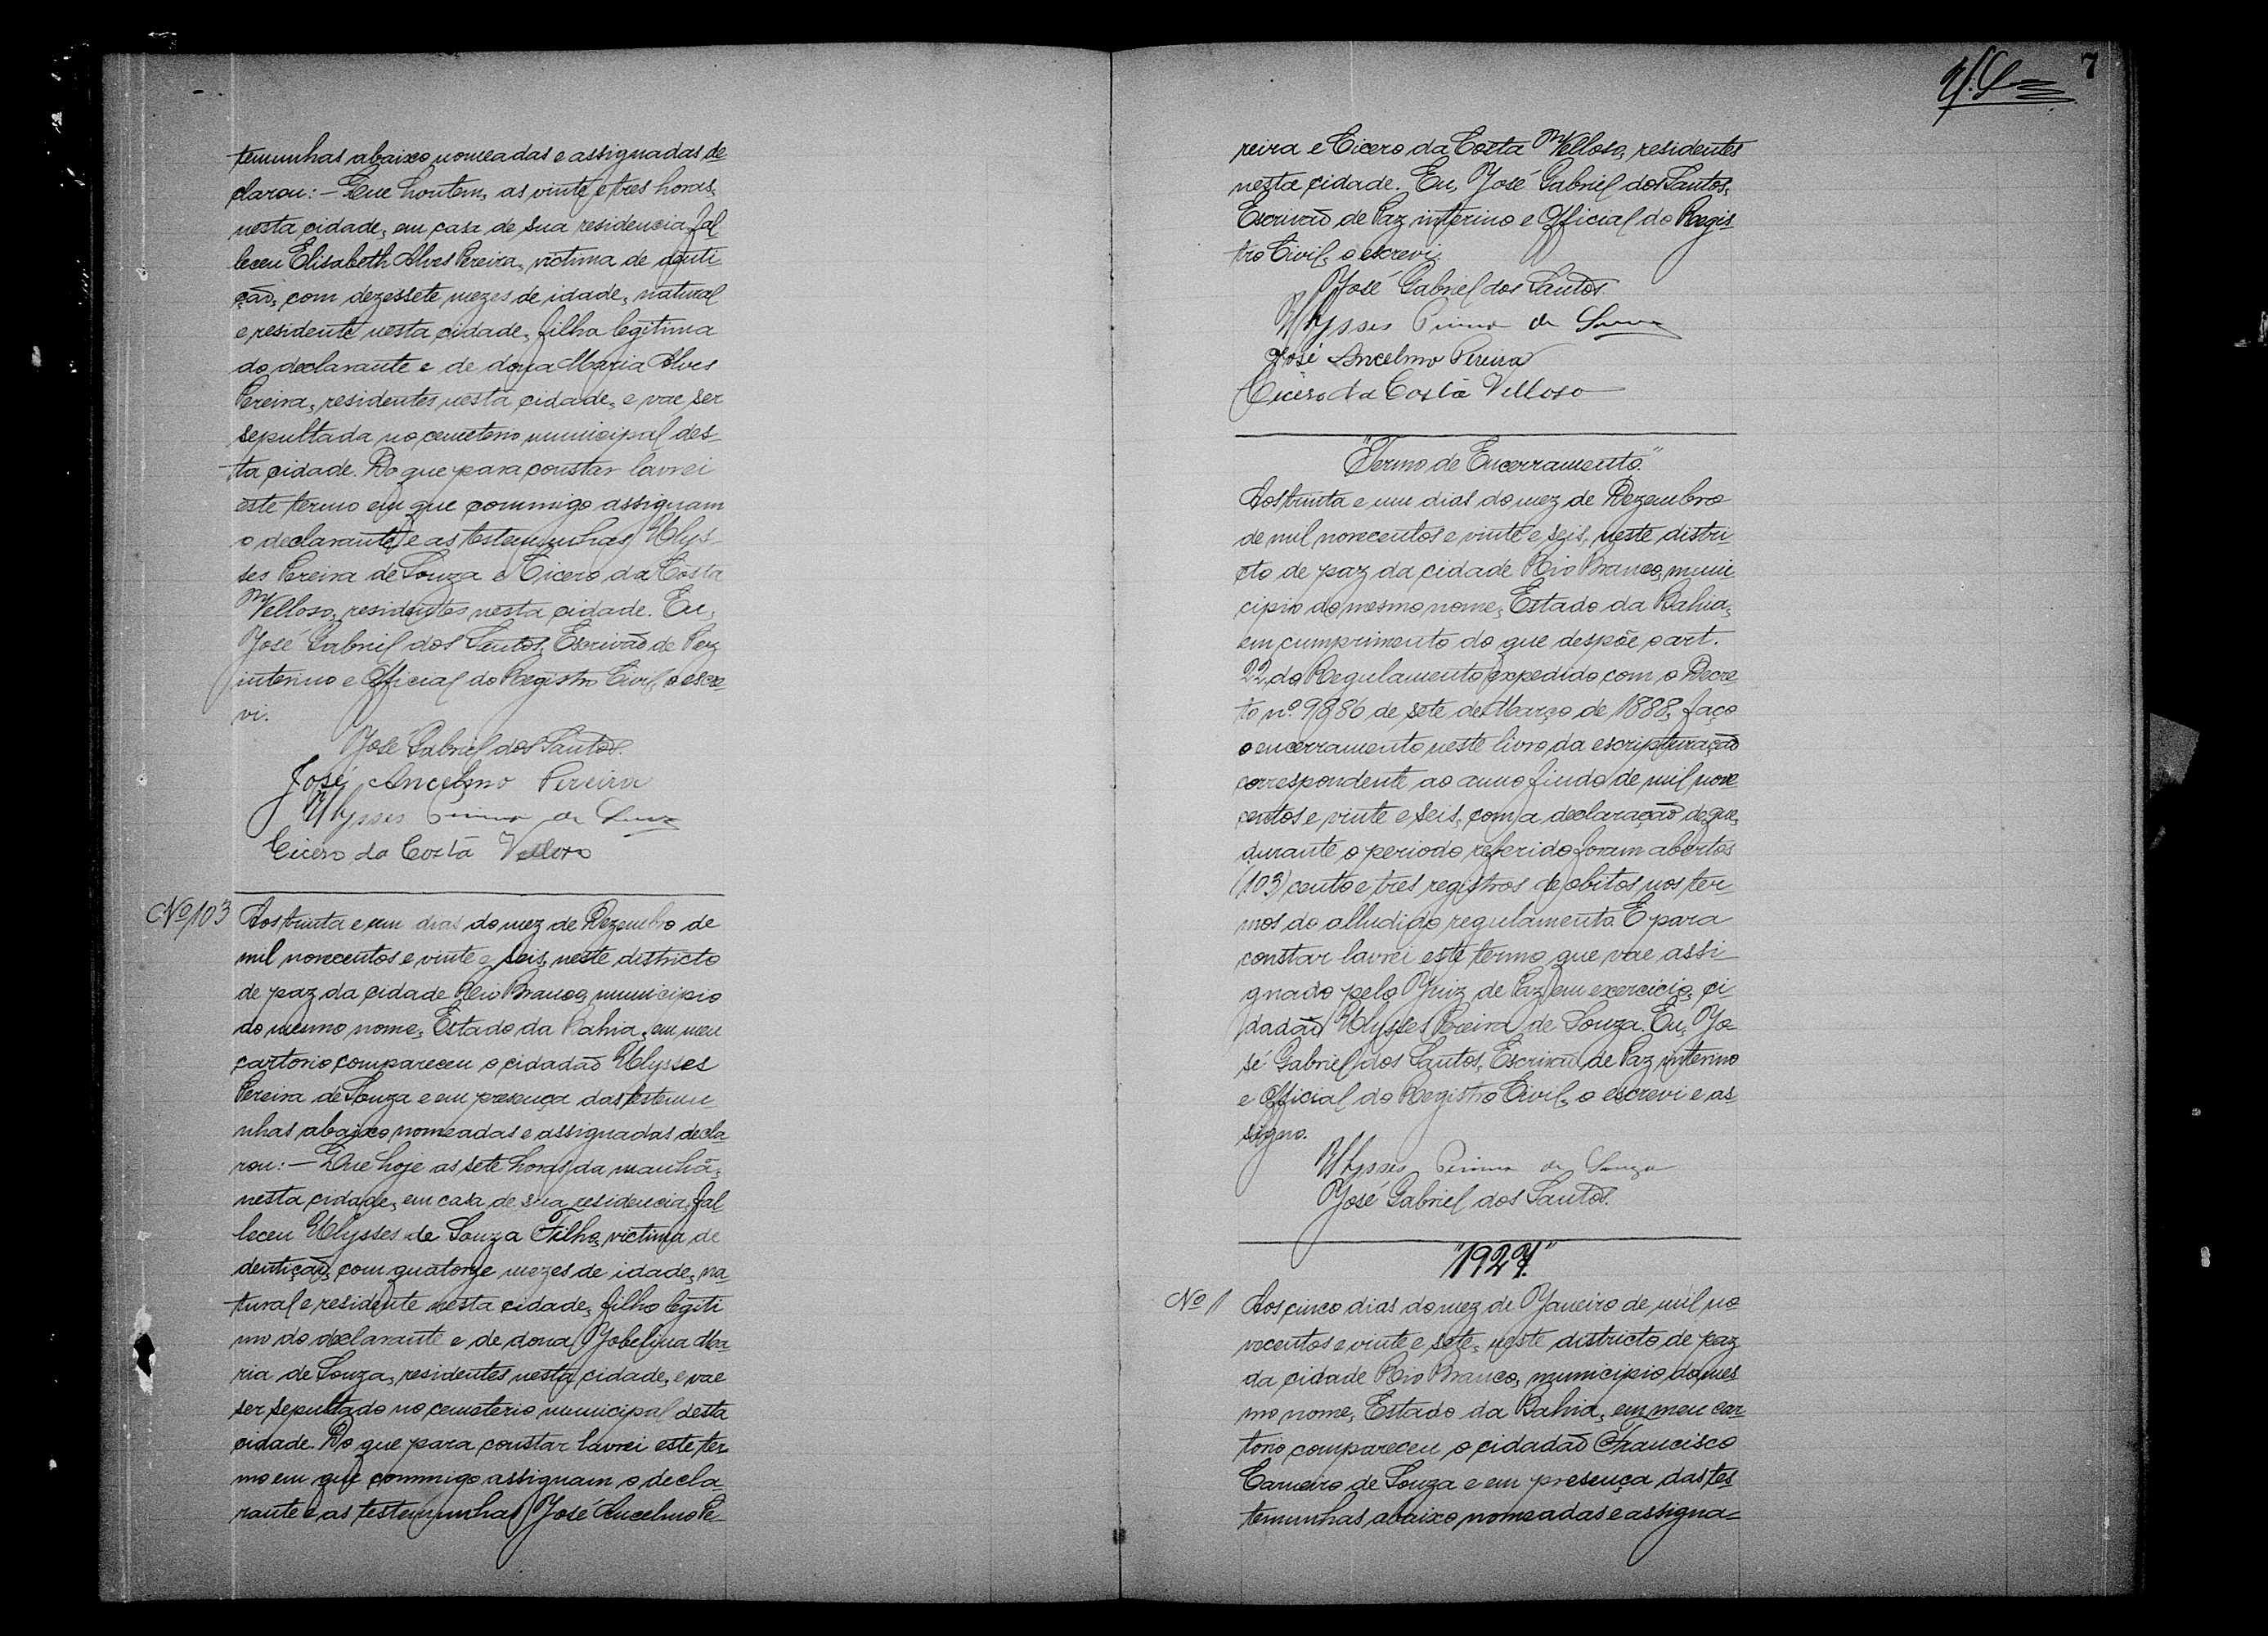 temunhas abaixo nomeadas e assignadas de
clarou: - Que hontem, as vinte e tres horas,
nesta cidade, em casa de sua residencia fal
leceu Elisabeth Alves Pereira, victima de denti
ção, com dezessete mezes de idade, natural
e residente nesta cidade, filha legitima
do declarante e de dona Maria Alves
Pereira, residentes nesta cidade, e vae ser
sepultada no cemeterio municipal des-
ta cidade. Do que para constar lavrei
este termo em que commigo assignam
o declarante e as testemunhas Ulys-
ses Pereira de Souza e Cicero da Costa
Velloso, residentes nesta cidade. Eu,
José Gabriel dos Santos, Escrivão de Paz
interino e Official do Registro Civil, o escre-
vi.
José Gabriel dos Santos.
José Ancelmo Pereira
Ulysses Pereira de Souza
Cicero da Costa Velloso
Nº 103
Aos trinta e um dias do mez de Dezembro de
mil novecentos e vinte e seis, neste districto
de paz da cidade Rio Branco, municipio
do mesmo nome, Estado da Bahia, em meu
cartorio compareceu o cidadão Ulysses
Pereira de Souza e em presença das testemu-
nhas abaixo nomeadas e assignadas decla-
rou: - Que hoje as sete horas da manhã,
nesta cidade, em casa de sua residencia, fal
leceu Ulysses de Souza Filho, victima de
dentição, com quatorze mezes de idade, na-
tural e residente nesta cidade, filho legiti
mo do declarante e de dona Jobelina Ma-
ria de Souza, residentes nesta cidade, e vae
ser sepultado no cemeterio municipal desta
cidade. Do que para constar lavrei este ter-
mo em que commigo assignam o decla-
rante e as testemunhas José Ancelmo Pe-
7
reira e Cicero da Costa Velloso, residentes
nesta cidade. Eu, José Gabriel dos Santos,
Escrivão de Paz interino e Official do Regis-
tro Civil, o escrevi.
José Gabriel dos Santos
Ulysses Pereira de Souza
José Ancelmo Pereira
Cicero da Costa Velloso
"Termo de Encerramento."
Aos trinta e um dias do mez de Dezembro
de mil novecentos e vinte e seis, neste distri-
cto de paz da cidade Rio Branco, muni-
cipio do mesmo nome, Estado da Bahia,
em cumprimento do que despõe o art.
22 do Regulamento expedido com o Decre-
to nº 9886 de sete de Março de 1888, faço
o encerramento neste livro da escripturação
correspondente ao anno findo de mil nove
centos e vinte e seis, com a declaração de que,
durante o periodo referido foram abertos
(103) cento e tres registros de obitos nos ter
mos do alludido regulamento. E para
constar lavrei este termo que vae assi
gnado pelo Juiz de Paz em exercicio, ci-
dadão Ulysses Pereira de Souza. Eu, Jo-
sé Gabriel dos Santos, Escrivão de Paz interino
e Official do Registro Civil, o escrevi e as-
signo.
Ulysses Pereira de Souza
José Gabriel dos Santos.
"1927."
Nº 1
Aos cinco dias do mez de Janeiro de mil no
vecentos e vinte e sete, neste districto de paz
da cidade Rio Branco, municipio do mes
mo nome, Estado da Bahia, em meu car-
torio compareceu o cidadão Francisco
Carneiro de Souza e em presença das tes
temunhas abaixo nomeadas e assigna-